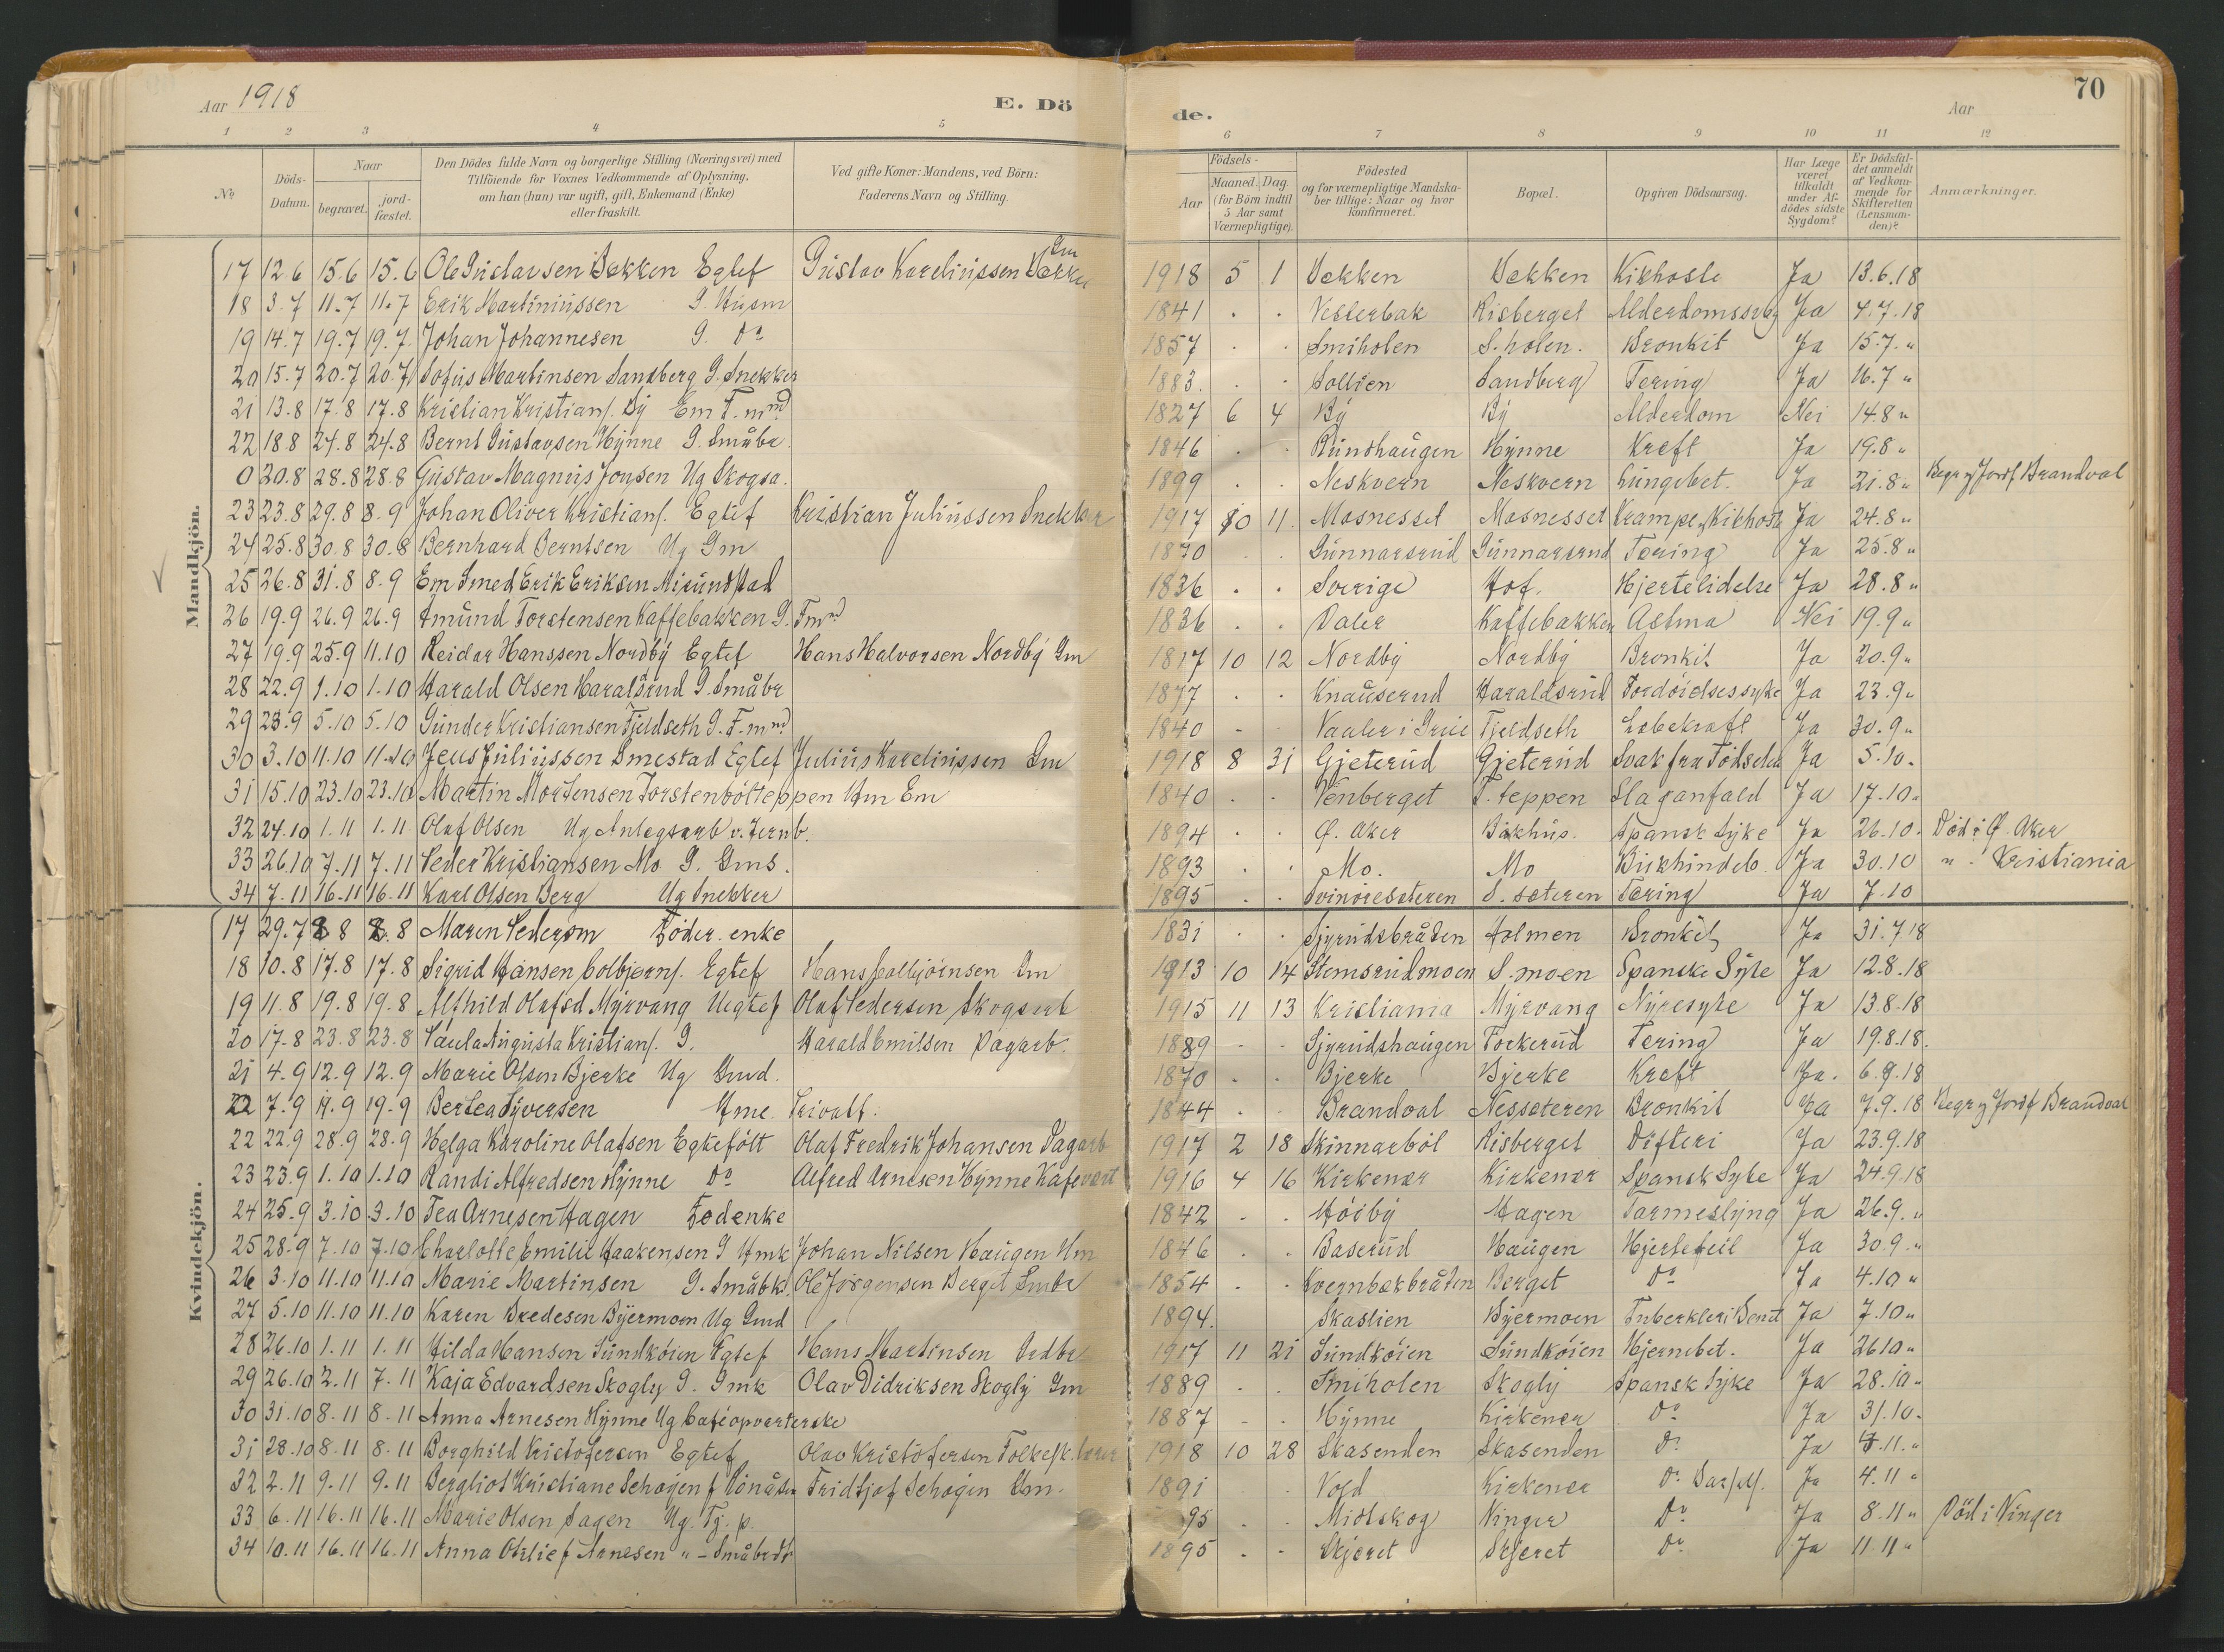 Aar 1918
E. Dö
de.
Aar
70
1 2 3 4 5 6 7 8 9 10 11 12
No
Döds-Datum.
Naar
begravet.
jord-fæstet.
Den Dödes fulde Navn og borgerlige Stilling (Næringsvei) med
Tilföiende for Voxnes Vedkommende af Oplysning,
om han (hun) var ugift, gift, Enkemand (Enke)
eller fraskilt.
Ved gifte Koner: Mandens, ved Börn:
Faderens Navn og Stilling.
Födsels-
Aar
Maaned. Dag.
(for Börn indtil
5 Aar samt
Værnepligtige).
Födested
og for værnepligtige Mandska-
ber tillige: Naar og hvor
konfirmeret.
Bopæl.
Opgiven Dödsaarsag.
Har Læge
været
tilkaldt
under Af-
dödes sidste
Sygdom?
Er Dödsfal-
det anmeldt
af Vedkom-
mende for
Skifteretten
(Lensman-
den)?
Anmærkninger.
Mandkjön.
17 12.6 15.6 15.6 Ole Gustavsen Bekken Egtef Gustav Kareliussen Bekken Gm 1918 5 1 Bekken Bekken Kikhoste Ja 13.6.18
18 3.7 11.7 11.7 Erik Martiniussen G. Husm 1841 . . Vesterbak Risberget Ja 4.7.18
19 14.7 19.7 19.7 Johan Johannesen G. Do 1857 . . Smiholen S.holen. Bronkit Ja 15.7. "
20 15.7 20.7 20.7 Sofus Martinsen Sandberg G. Snekker 1883. . . Sollien Sandberg Tering Ja 16.7 "
21 13.8 17.8 17.8 Kristian Kristians. By Em F.md 1827 6 4 By By Alderdom Nei 14.8 "
22 18.8 24.8 24.8 Bernt Gustavsen Hynne G. Småbr. 1846 . . Rundhaugen Hynne Kreft Ja 19.8 "
0 20.8 28.8 28.8 Gustav Magnus Jonsen Ug Skogsa. 1899 . . Neskvern Neskvern Lungebet. Ja 21.8 " Begr og Jordf Brandval
23 23.8 29.8 8.9 Johan Oliver Kristians. Egtef Kristian Juliussen Snekker 1917 10 11. Mosnesset Mosnesset Krampe, Kikhoste Ja 24.8 "
24 25.8 30.8 30.8 Bernhard Berntsen Ug Gm 1870 . . Gunnarsrud Gunnarsrud Tæring Ja 25.8 "
25 26.8 31.8 8.9 Em Smed Erik Eriksen Misundstad 1836 . . Sverige Hof. Hjertelidelse Ja 28.8 "
26 19.9 26.9 26.9 Amund Torstensen Kaffebakken G. Fmd 1836 . . Valer Kaffebakken Astma Nei 19.9 "
27 19.9 25.9 11.10 Reidar Hanssen Nordby Egtef Hans Halvorsen Nordby Gm 1817 10 12 Nordby Nordby Bronkit Ja 20.9 "
28 22.9 1.10 1.10 Harald Olsen Haralsrud G. Småbr 1877 . . Knauserud Haraldsrud Fordöielsessyke Ja 23.9 "
29 23.9 5.10 5.10 Gunder Kristiansen Fjeldseth G. F.md 1840 - . Vaaler i Grue Fjeldseth Lebekraft Ja 30.9 "
30 3.10 11.10 11.10 Jens Juliussen Smestad Egtef Julius Kareliussen Gm 1918 8 31 Gjeterud Gjeterud Svak fra Födselen Ja 5.10.
31 15.10 23.10 23.10 Martin Mortensen Torstenbölteppen Hm Em 1840 . . Venberget T.teppen Slaganfald Ja 17.10.
32 24.10 1.11 1.11 Olaf Olsen Ug Anlegsarb v. Jernb. 1894 . . Ø. Aker Bakhus. Spansk Syke Ja 26.10. Död i Ø. Aker
33 26.10 7.11 7.11 Peder Kristiansen Mo G. Gms. 1893 . . Mo. Mo Bukhindeb. Ja 30.10 " - Kristiania
34 7.11 16.11 16.11 Karl Olsen Berg Ug Snekker 1895 . . Svinöresæteren S. sæteren Tæring Ja 7.10
Kvindekjön.
17 29.7 8.8 8.8 Maren Pedersen Föder. enke 1831 . . Sjyrudsbråten Holmen Bronkit Ja 31.7 18
18 10.8 17.8 17.8 Sigrid Hansen Colbjørns. Egtef Hans Colbjörnsen Gm 1913 10 14 Stemsrudmoen S.moen Spanske Syke Ja 12.8.18
19 11.8 19.8 19.8 Alfhild Olafsd Myrvang Uegtef Olaf Pedersen Skogsarb 1915 11 13 Kristiania Myrvang Nyresyke Ja 13.8.18
20 17.8 23.8 23.8 Paula Augusta Kristians. G. Harald Emilsen Dagarb. 1889 - . Sjyrudshaugen Torkerud Tering Ja 19.8.18.
21 4.9 12.9 12.9 Marie Olsen Bjerke Ug Gmd. 1870 . . Bjerke Bjerke Kreft Ja. 6.9.18
22 7.9 19.9 19.9 Bertea Syversen Hme. Privatf. 1844 . . Brandval Nesseteren Bronkit Ja 7.9.18 Begr og Jordf Brandval
22 22.9 28.9 28.9 Helga Karoline Olafsen Egtefött Olaf Fredrik Johansen Dagarb 1917 2 18 Skinnarböl Risberget Difteri Ja 23.9.18
23 23.9 1.10 1.10 Randi Alfredsen Hynne Do Alfred Arnesen Hynne Kafevært 1916 4 16 Kirkenær Kirkenær Spansk Syke Ja 24.9.18
24 25.9 3.10 3.10 Tea Arnesen Hagen Födenke 1842 - . Höiby Hagen Tarmeslyng Ja 26.9. "
25 28.9 7.10 7.10 Charlotte Emilie Haakensen G Hmk Johan Nilsen Haugen Hm 1846 . . Baserud Haugen Hjertefeil Ja 30.9. "
26 3.10 11.10 11.10 Marie Martinsen G. Småbk. Ole Jörgensen Berget Småbr 1854 . . Kvernbækbråten Berget Do Ja 4.10 "
27 5.10 11.10 11.10 Karen Bredesen Byermoen Ug Gmd 1894. Skaslien Byermoen Ja 7.10 "
28 26.10 1.11 1.11 Hilda Hansen Sundköien Egtef Hans Martinsen 1917 11 21 Sundköien Sundköien Hjernebet. Ja 26.10 "
29 26.10 2.11 7.11 Kaja Edvardsen Skogly G. Gmk Olav Didriksen Skogly Gm 1889 . . Smiholen Skogly Spansk Syke Ja 28.10 "
30 31.10 8.11 8.11 Anna Arnesen Hynne Ug Caféopvarterske 1887 - . Hynne Kirkenær Do Ja 31.10.
31 28.10 8.11 8.11 Borghild Kristofersen Egtef Olav Kristofersen Folkesk.lærer 1918 10 28 Skasenden Skasenden Do Ja 4.11. "
32 2.11 9.11 9.11 Bergliot Kristiane Schøyen f Vonåsen Fridtjof Schøgen Gm. 1891 Vold Kirkenær Do Ja 4.11 "
33 6.11 16.11 16.11 Marie Olsen Sagen Ug. Tj. p. 95 . . Midtskog Vinger Do Ja 8.11 " Död i Vinger
34 10.11 16.11 16.11 Anna Otilie f Arnesen " - Småbrdt 1895 - . Skjæret Skjeret Do Ja 11.11 "